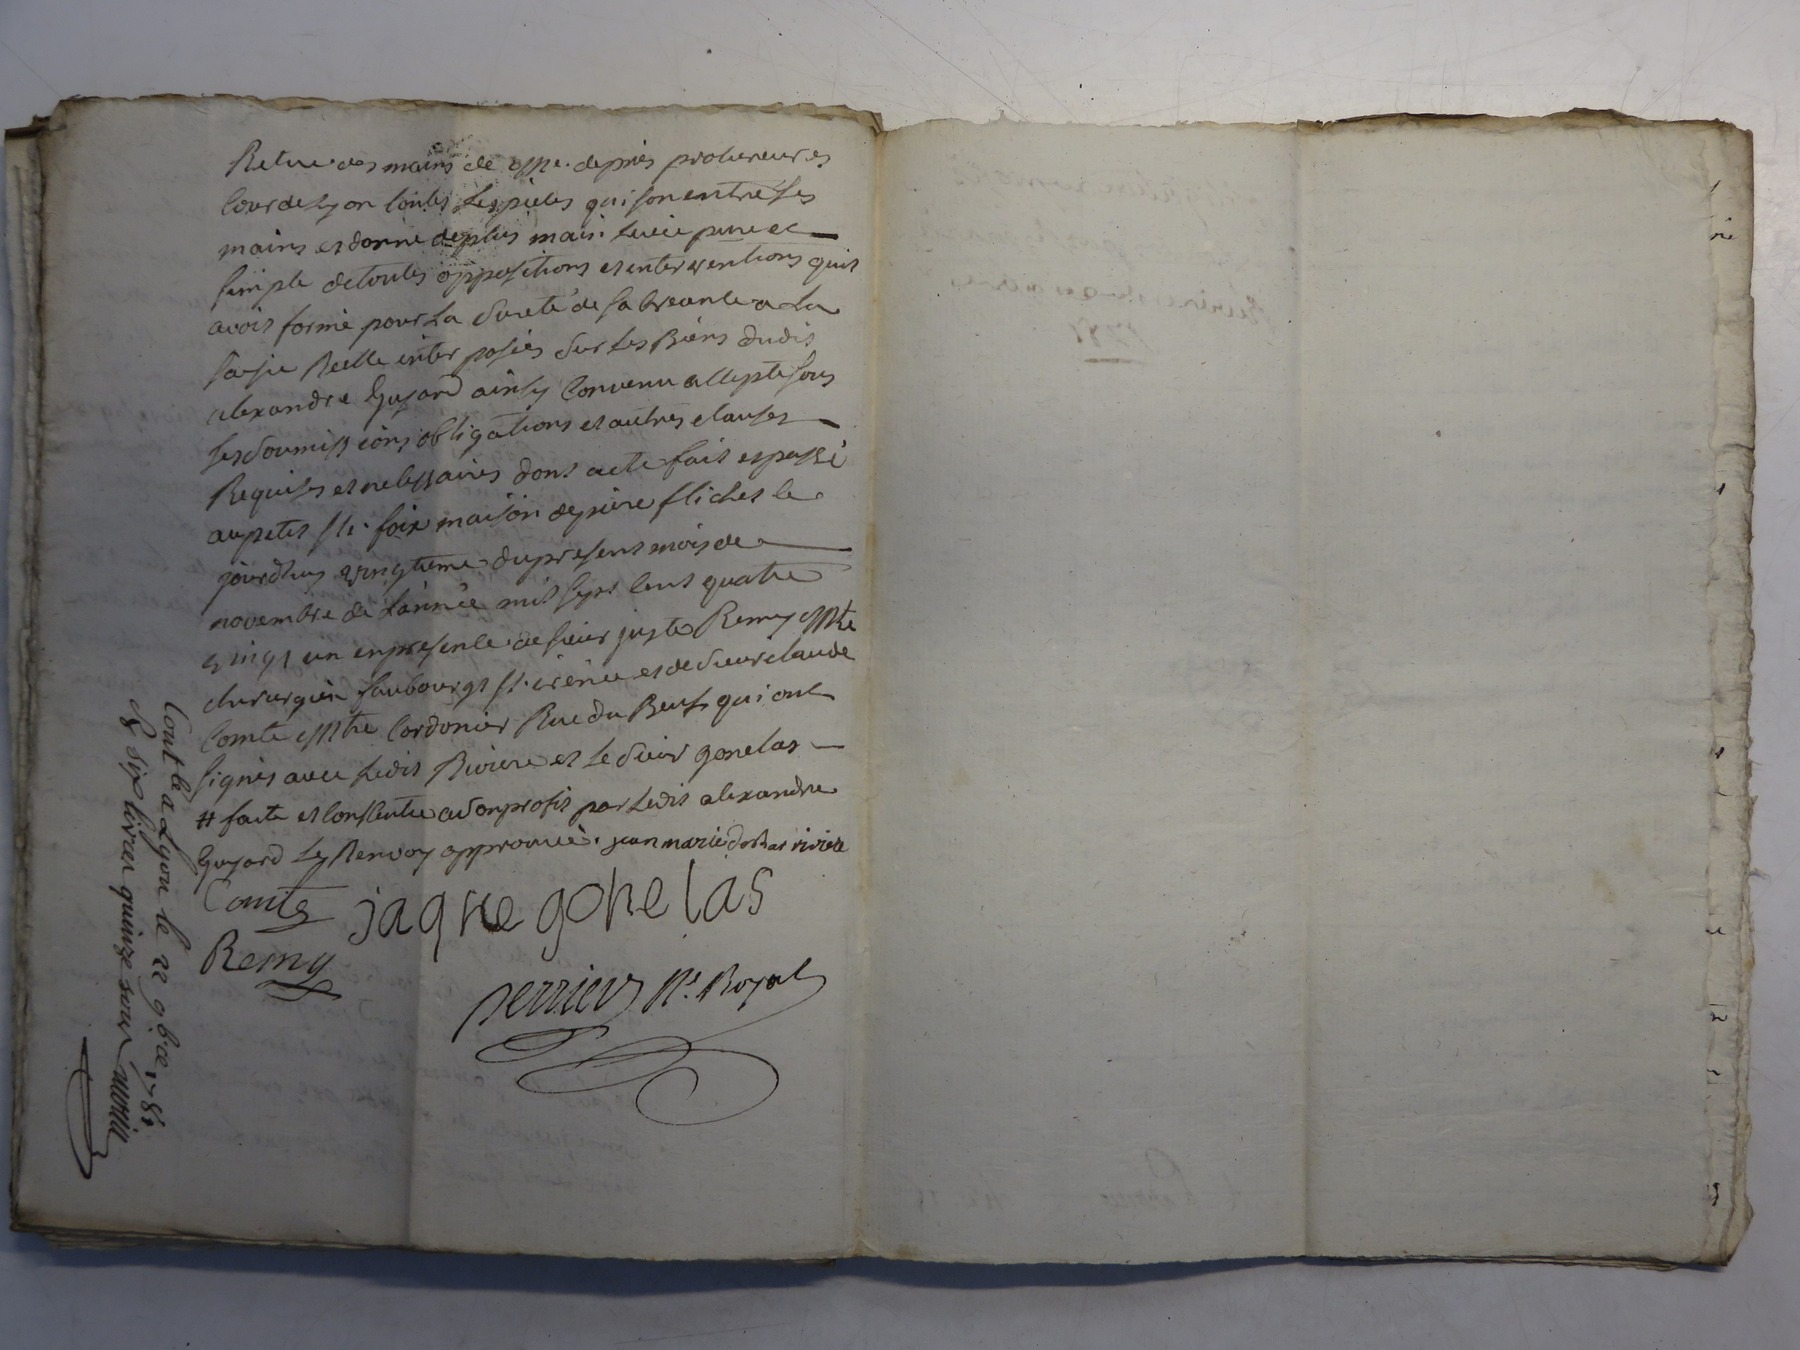 Retire des mains de Mre. depres procureur es
Cour de Lyon toutes les pieces qui son entre ses
mains et donne de plus main levée pure et
simple de toutes oppositions et interventions quil
avoit formé pour la Sureté de sa Creance a la
saisie Reelle interposées sur les Biens dudit
alexandre Guyard ainsy Convenu accepté sous
les soumissions obligations et autres clauses
Requises et necessaires dont acte fait et passé
au petit Ste. foix maison de piere fliches le
jourdhuy vingtieme du present mois de
novembre de Lannée mil sept cent quatre
vingt un en presence de sieur juste Remy Mtre
chirurgien faubourgt st. irénée et de Sieur claude
Comte Mtre Cordonier Rue du Beuf qui ont
signés avec Ledit Riviere et le Sieur gonelas
# faite et Consentie a Son profit par Ledit alexandre
Guyard Le Renvoy approuvé. jean marie rivière
Comte jaque gonelas
Remy
perrier Nre. Royal
Cont. lé a Lyon le 22 9bre 1781
Rx six livres quinze sous